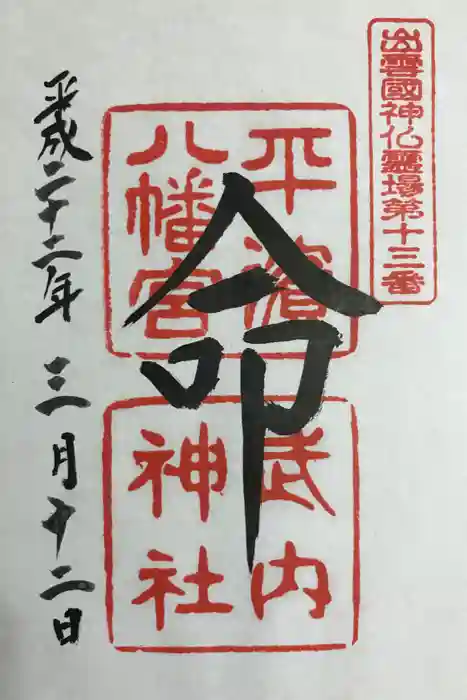 出雲國神仏霊場第十三番
平濱
八幡宮
武内
神社
命
平成二十二年 三月十二日